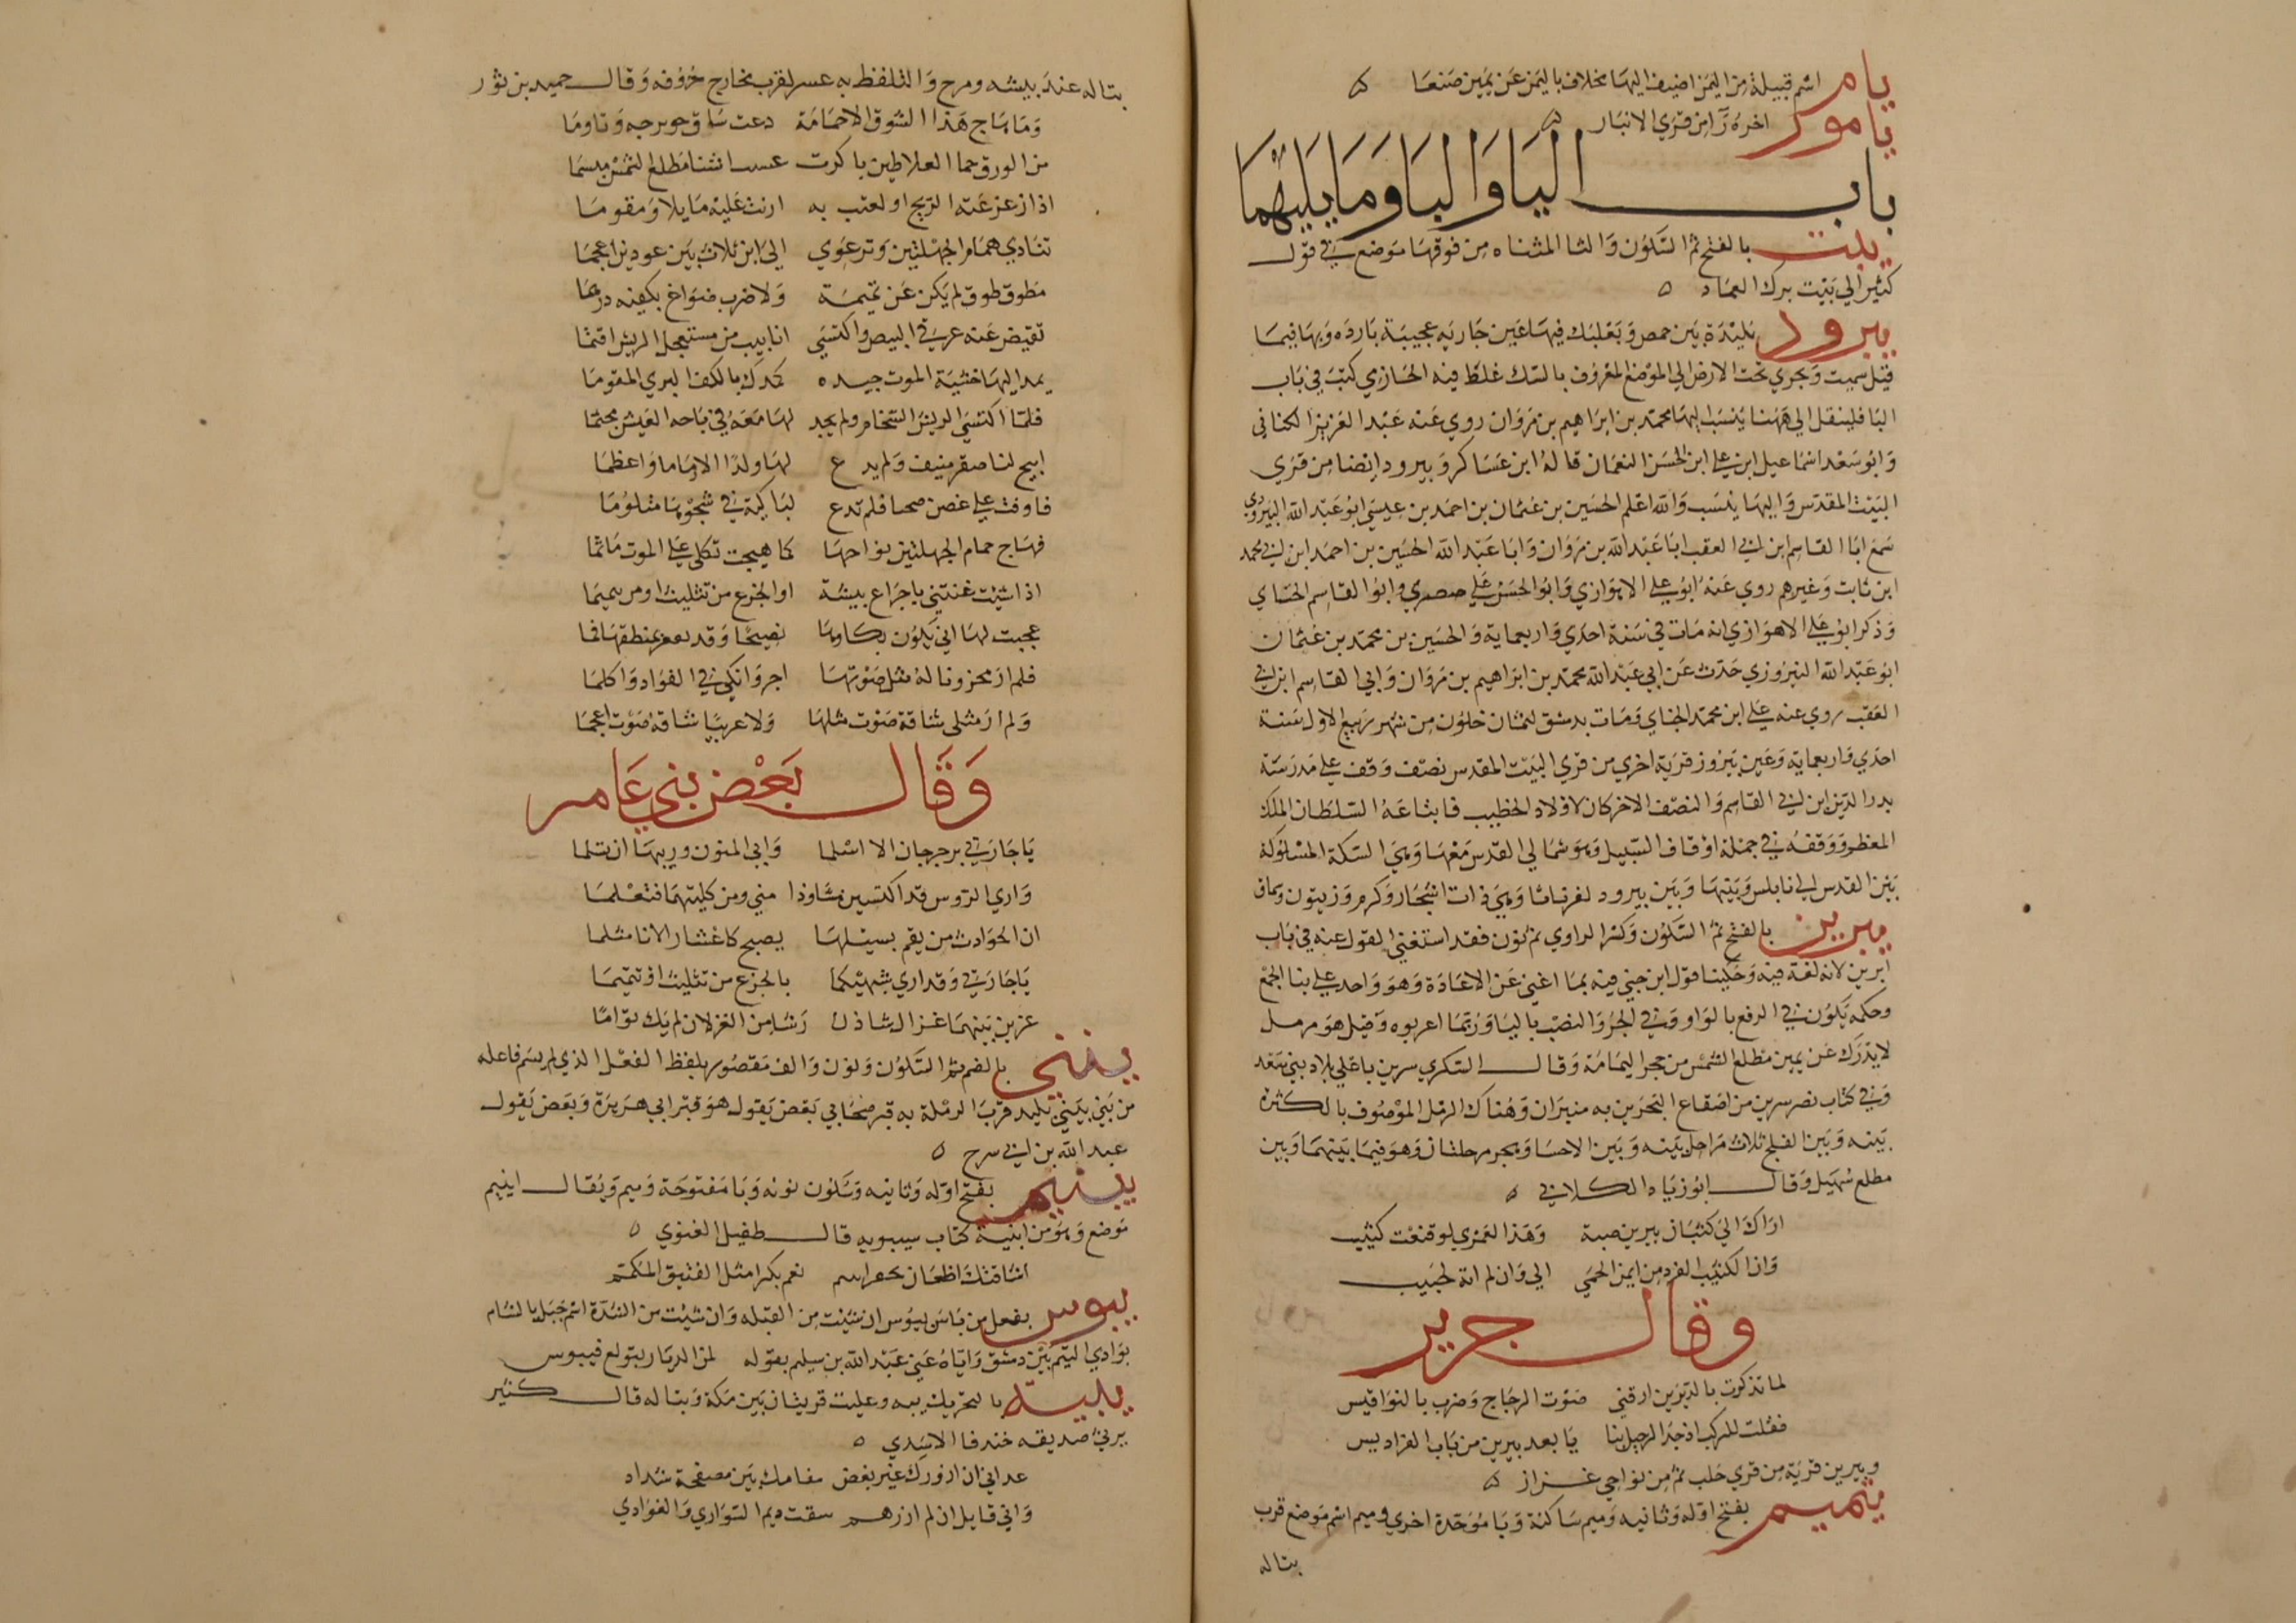 يام اسم قبيلة من اليمن اضيف اليها مخلاف باليمن عن يمين صنعا
يامور اخره را من قري الانبار
باب اليا والبا وما يليهما
يبت بالفتح ثم السكون والتا المثناه من فوقها موضع في قول
كثير الي بيت برك العماد
يبرود بليدة بين حمص وبعلبك فيها عين جاريه عجيبة بارده وبها فيما
قيل سميت وتجري تحت الارض الي الموضع المعروف بالنبك غلط فيه الحازمي كتبت في باب
البا فلينقل الي ههنا ينسب اليها محمد بن ابراهيم بن مروان روي عنه عبد العزيز الكناني
وابو سعد اسماعيل ابن علي ابن الحسن النعمان قاله ابن عساكر ويبرود ايضا من قري
البيت المقدس واليها ينسب والله اعلم الحسين بن عثمان بن احمد بن عيسي ابو عبد الله اليبرودي
سمع ابا القاسم ابن ابي العقب ابا عبد الله بن مروان وابا عبد الله الحسين بن احمد ابن ابي محمد
ابن ثابت وغيرهم روي عنه ابو علي الاهوازي وابو الحسن علي صصري وابو القاسم الحناي
وذكر ابو علي الاهوازي انه مات في سنة احدي واربعماية والحسين بن محمد بن عثمان
ابو عبد الله اليبروزي حدث عن ابي عبد الله محمد بن ابراهيم بن مروان وابي القاسم ابن ابي
العقب روي عنه علي ابن محمد الحناي ومات بدمشق لثمان خلون من شهر ربيع الاول سنة
احدي واربعماية وعين يبروز قرية اخري من قري البيت المقدس نصف وقف علي مدرسة
بدر الدين ابن ابي القاسم والنصف الاخر كان لاولاد الخطيب فابتاعه السلطان الملك
المعظم ووقفه في جملة اوقاف السبيل وهو شمالي القدس معها وهي السكة المسلوكة
بين القدس الي نابلس وبينها وبين يبرود وهي ذات اشجار وكرم وزيتون وسماق
يبرين بالفتح ثم السكون وكسر الراوي ثم نون فقد استغني القول عنه في باب
ابرين لانه لغة فيه وحكينا قول ابن جني فيه بما اغني عن الاعادة وهو واحد علي بنا الجمع
وحكمه يكون في الرفع بالواو وفي الجر والنصب باليا وربما اعربوه وقيل هو رمل
لا يدرك عن يمين مطلع الشمس من حجر اليمامة وقال السكري يبرين باعلي بلاد بني سعد
وفي كتاب نصر يبرين من اصقاع البحرين به منبران وهناك الرمل الموصوف بالكثرة
بينه وبين الفلج ثلاث مراحل بينه وبين الاحسا وهجر مرحلتان وهو فيما بينهما وبين
مطلع سهيل وقال ابو زياد الكلابي
اراك الي كثبان يبرين صبة وهذا لعمري لو قنعت كثيب
وان الكثيب الفرد من ايمن الحمي الي وان لم اته لحبيب
وقال جرير
لما تذكرت بالديرين ارقني صوت الدجاج وضرب بالنواقيس
فقلت للركب اذ جد الرحيل بنا يا بعد يبرين من باب الفراديس
ويبرين قرية من قري حلب ثم من نواحي عزاز
يبمبم بفتح اوله وثانيه وميم ساكنة وبا موحدة اخري وميم اسم موضع قرب
بتاله
بتاله عند بيشه ومرج والتلفظ به عسر لقرب مخارج حروفه وقال حميد بن ثور
وما هاج هذا الشوق الا حمامة دعت ساق حر برجه وتاوما
من الورق حما العلاطين باكرت مطلع الشمس ميسما
اذا زعزعته الريح او لعبت به ارنت عليه مايلا ومقوما
تنادي حمام الجهلتين وترعوي الي ابن ثلاث بين عودين اعجما
مطوق طوق لم يكن عن تميمة ولا ضرب صواغ بكفيه درهما
تقيض عنه غرقي البيض واكتسي انابيب من مستعجل الريش اقتما
يمد اليها خشية الموت جيده كمدك بالكف البري المقوما
فلما اكتسي الريش السخام ولم يجد لها معه في باحة العيش مجثما
ابيح لها صقر منيف ولم يدع لها ولدا الا رماما واعظما
فاوفت علي غصن ضحيا فلم تدع لباكية في شجوها متلوما
فهاج حمام الجهلتين نواحها كما هيجت ثكلي علي الموت ماتما
اذا شيت غنتني باجزاع بيشة او الجزع من تثليث او من يبمبما
عجبت لها اني يكون بكاوها فصيحا وقد تفغر بمنطقها فما
فلم ار محزونا له مثل صوتها احر وانكي في الفواد واكلما
ولم ار مثلي شاقه صوت مثلها ولا عربيا شاقه صوت اعجما
وقال بعض بني عامر
يا جارتي برجرجان الا اسلما وابي المنون وريبها ان تسلما
واري الروس قد اكتسين مشاوذا مني ومن كليتهما فتعلما
ان الحوادث من يقم بسبيلها يصبح كاعشار الانا مثلما
يا جارتي وقد اري شبهيكما بالجزع من تثليث او يبمبما
عنزين بينهما غزال شاذن رشا من الغزلان لم يك توأما
يبني بالضم ثم السكون ونون والف مقصور بلفظ الفعل الذي لم يسم فاعله
من بني يبني بليد قرب الرملة به قبر صحابي بعض يقول هو قبر ابي هريرة وبعض يقول
عبد الله بن ابي سرح
يبنبم بفتح اوله وثانيه وسكون نونه وبا مفتوحة وميم ويقال ابنبم
موضع وهو من ابنية كتاب سيبويه قال طفيل الغنوي
اشاقتك اظعان نعم بكرا مثل الفنيق المكمم
يبوس يفعل من باس يبوس ان شيت من القبله وان شيت من الشدة اسم جبل بالشام
بوادي التيم بين دمشق واياه عني عبد الله بن سليم بقوله لمن الديار بتولع فيبوس
يبة بالتحريك قريتان بين مكة وبتاله قال كثير
يرثي صديقه خندفا الاسدي
عداني ان ازورك غير بغض مقامك بين مصفحة شداد
واني قايل ان لم ازرهم سقت ديم السواري والغوادي